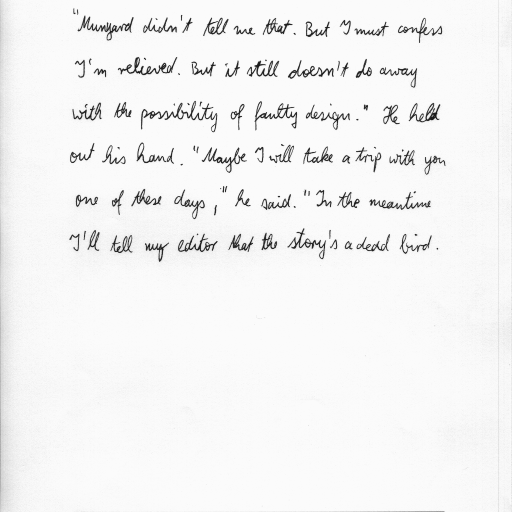 "Munyard didn't tell me that. But I must confess
I'm relieved. But it still doesn't do away
with the possibility of faulty design." He held
out his hand. "Maybe I will take a trip with you
one of these days," he said. "In the meantime
I'll tell my editor that the story's a dead bird.